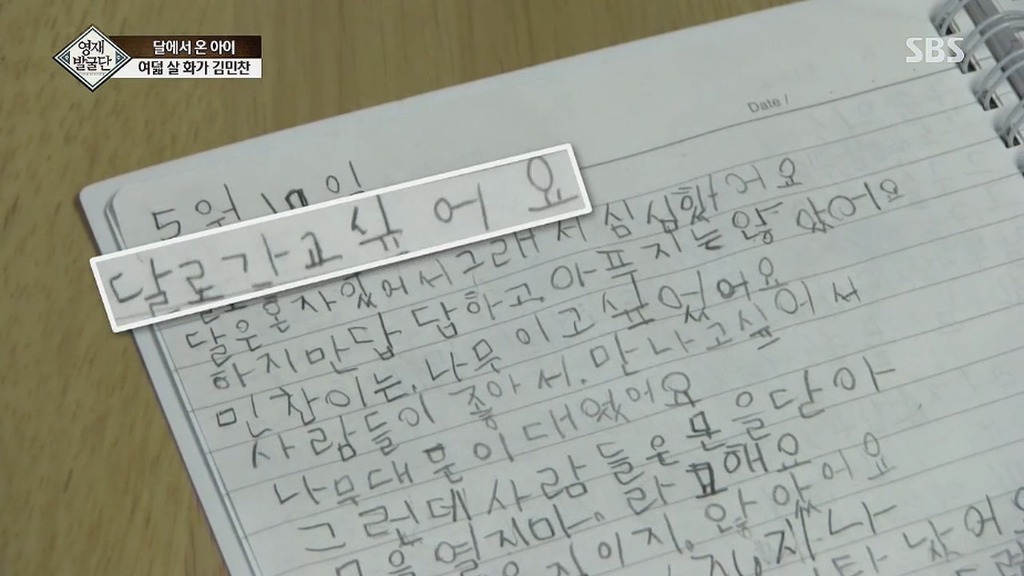 영재
발굴단
달에서 온 아이
여덟 살 화가 김민찬
SBS
Date /
5월 10일
달로가고싶어요
달은혼자있어서구래서심심했어요
하지만답답하고아프지는않았어요
민찬이는.나무이고싶었어요
사람들이좋아서.만나고싶어서
나무대문이대었어요
그런데사람들은문을닫아
문을열지마.라고해요